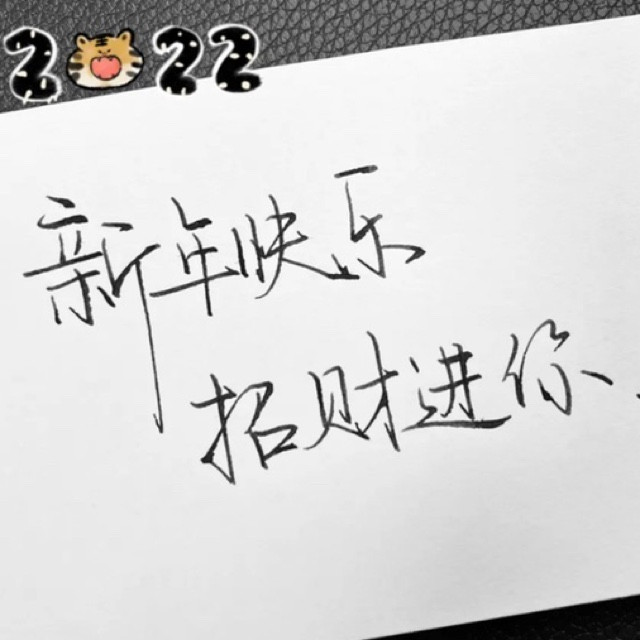 2022
新年快乐
招财进你、